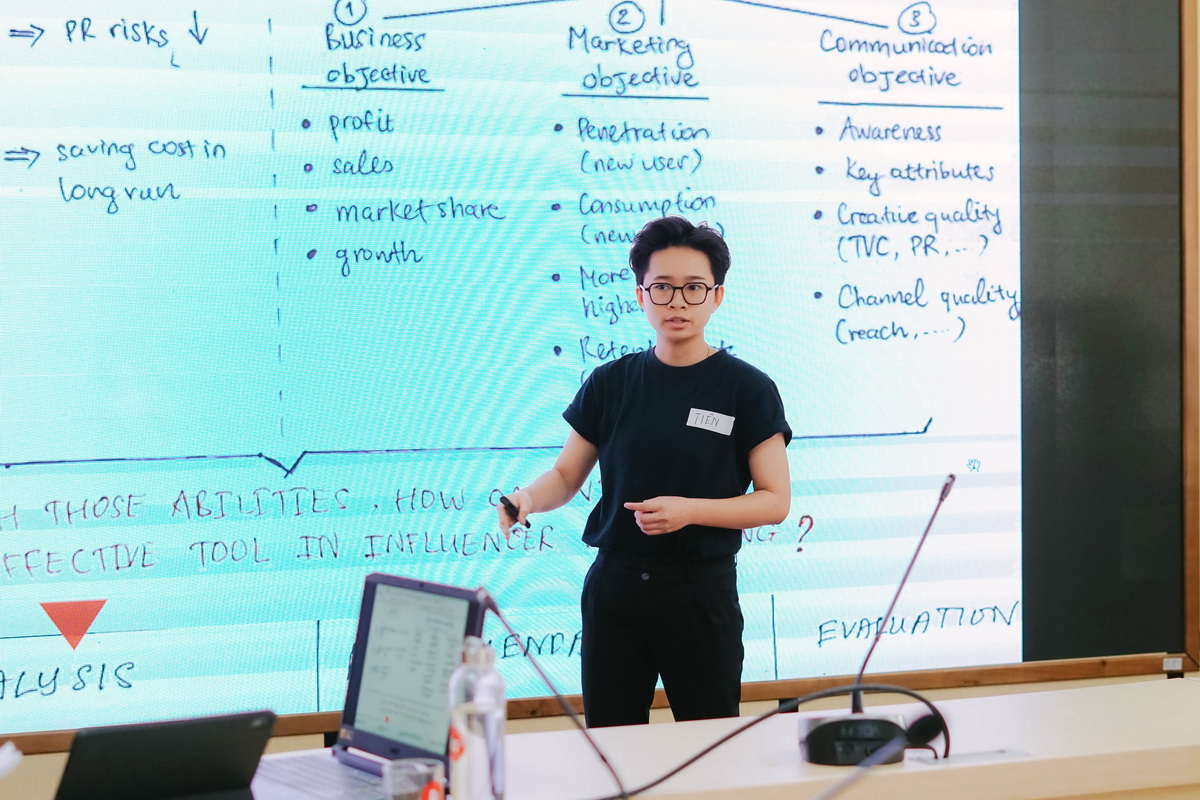 ⇒ PR risks ↓
⇒ saving cost in
long run
1
Business
objective
• profit
• sales
• market share
• growth
2
Marketing
objective
• Penetration
(new user)
• Consumption
(new
• More
highe
•
3
Communication
objective
• Awareness
• Key attributes
• Creative quality
(TVC, PR, ...)
• Channel quality
(reach, ....)
TIÊN
THOSE ABILITIES, HOW
EFFECTIVE TOOL IN INFLUENCER ?
ALYSIS
EVALUATION